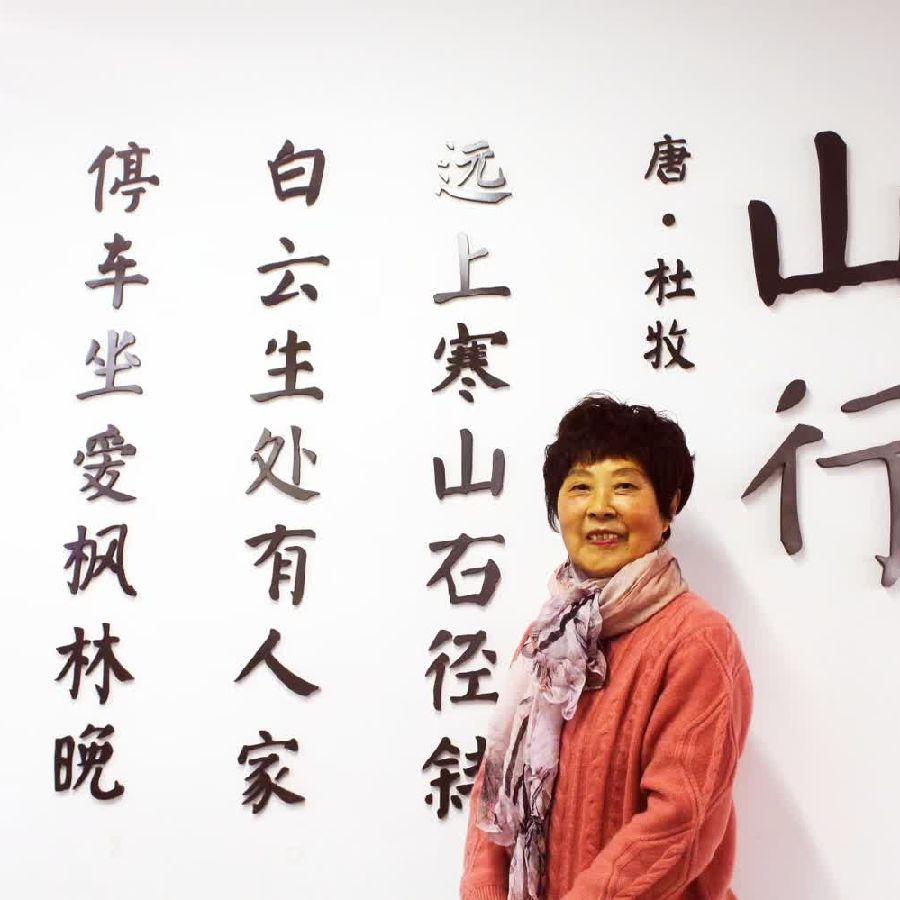 山行
唐·杜牧
远上寒山石径斜
白云生处有人家
停车坐爱枫林晚